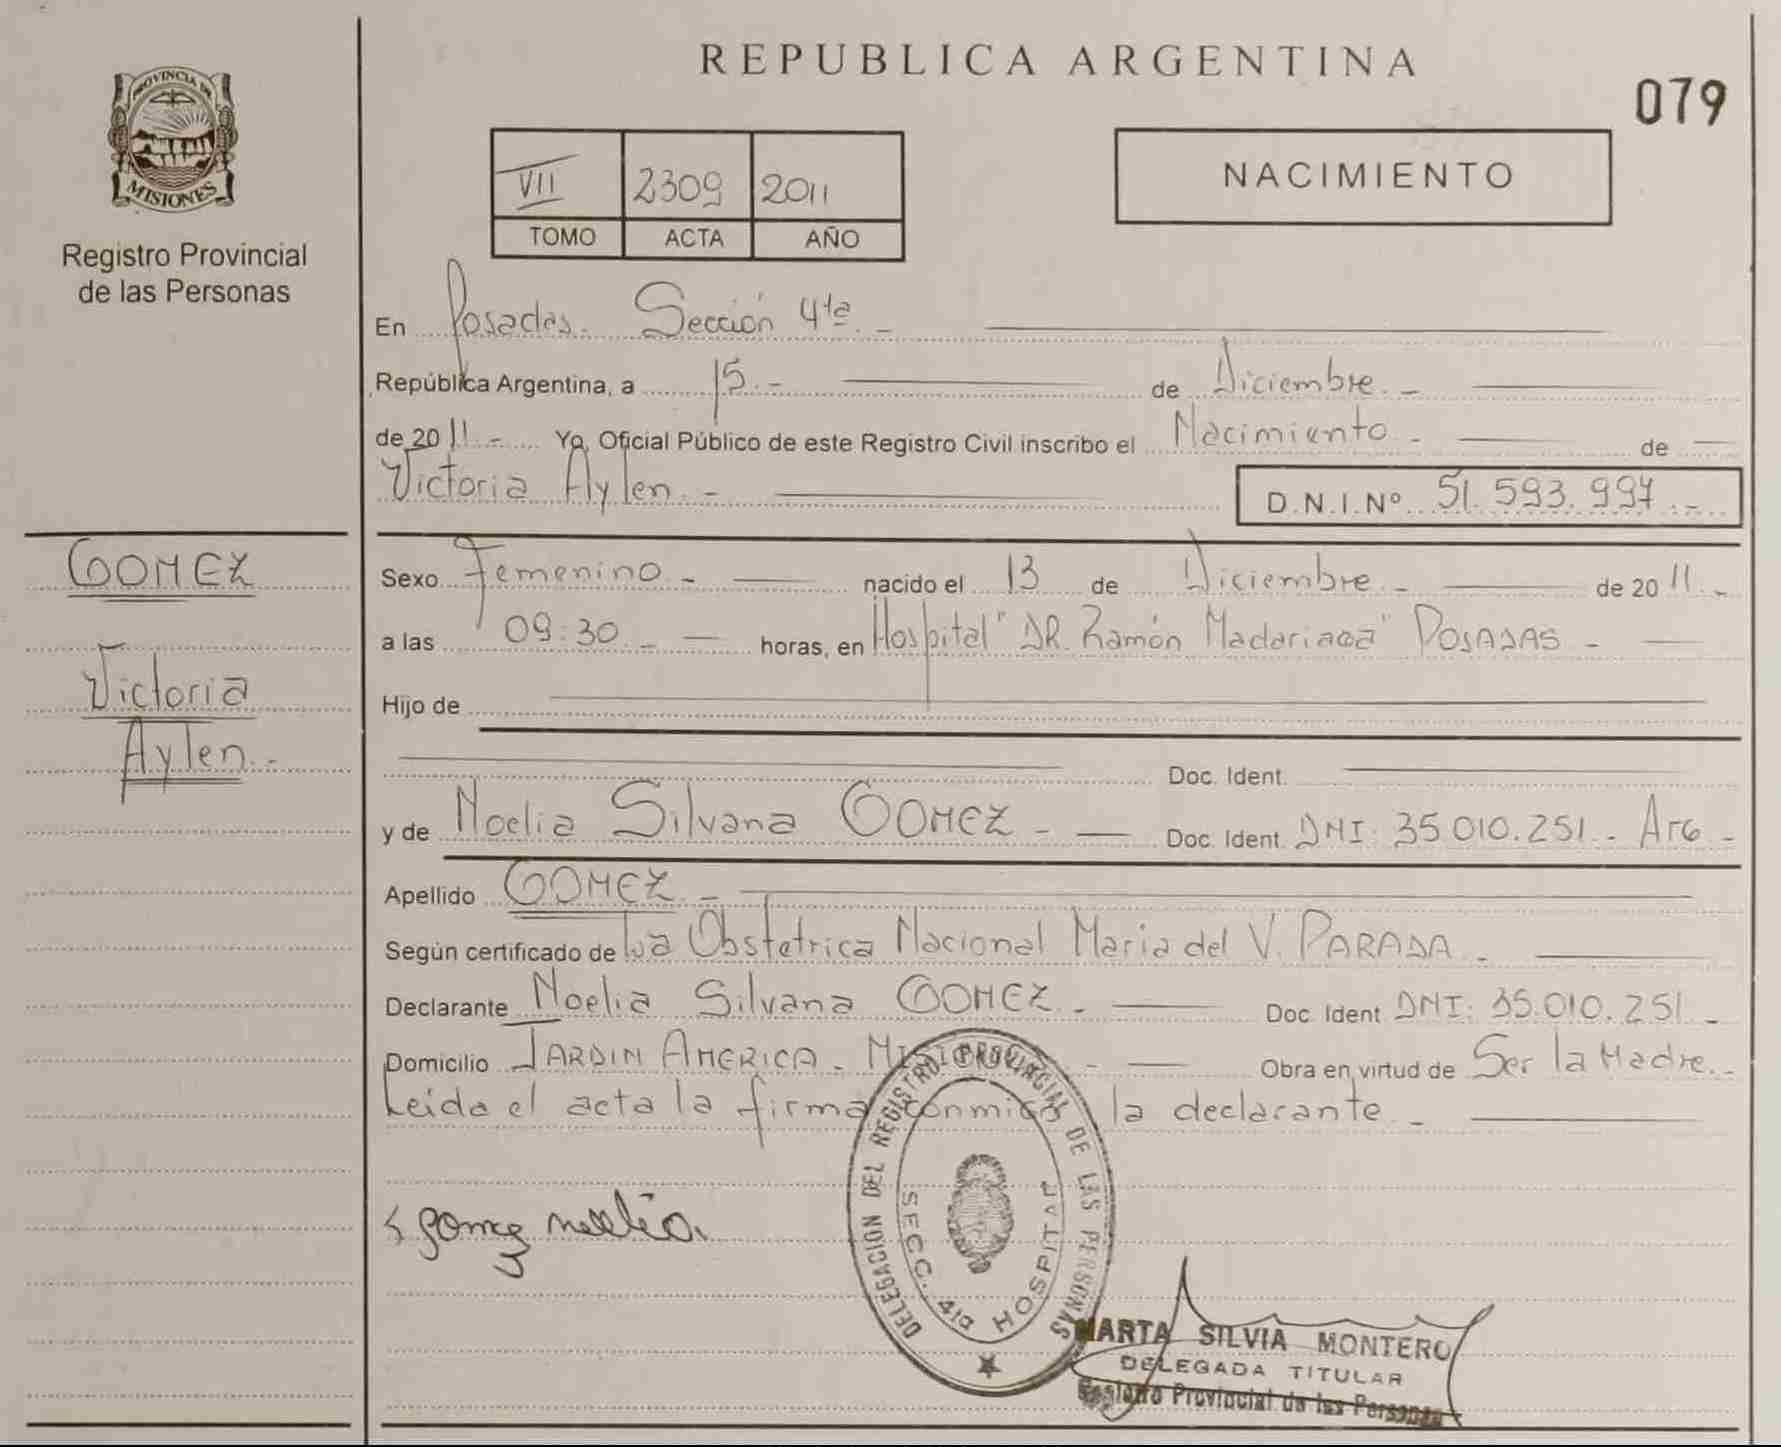 REPUBLICA ARGENTINA
079
PROVINCIA DE
MISIONES
Registro Provincial
de las Personas
VII 2309 2011
TOMO ACTA AÑO
NACIMIENTO
En Posadas. Sección 4ta. -
República Argentina, a 15. - de Diciembre. -
de 2011. - Yo, Oficial Público de este Registro Civil inscribo el Nacimiento. - de
Victoria Aylen. - D.N.I.Nº 51.593.997. -
GOMEZ
Victoria
Aylen. -
Sexo Femenino - nacido el 13 de Diciembre. - de 2011. -
a las 09:30. - horas, en Hospital "DR. Ramón Madariaga" POSADAS -
Hijo de
Doc. Ident.
y de Noelia Silvana GOMEZ - Doc. Ident. DNI: 35.010.251. - Arg -
Apellido GOMEZ. -
Según certificado de La Obstetrica Nacional Maria del V. PARADA. -
Declarante Noelia Silvana GOMEZ. - Doc. Ident DNI: 35.010.251. -
Domicilio JARDIN AMERICA - - Obra en virtud de Ser la Madre. -
Leida el acta la firma conmigo la declarante. -
gomez noelia
DELEGACION DEL REGISTRO PROVINCIAL DE LAS PERSONAS
SECC. 4ta HOSPITAL
MARTA SILVIA MONTERO
DELEGADA TITULAR
Registro Provincial de las Personas